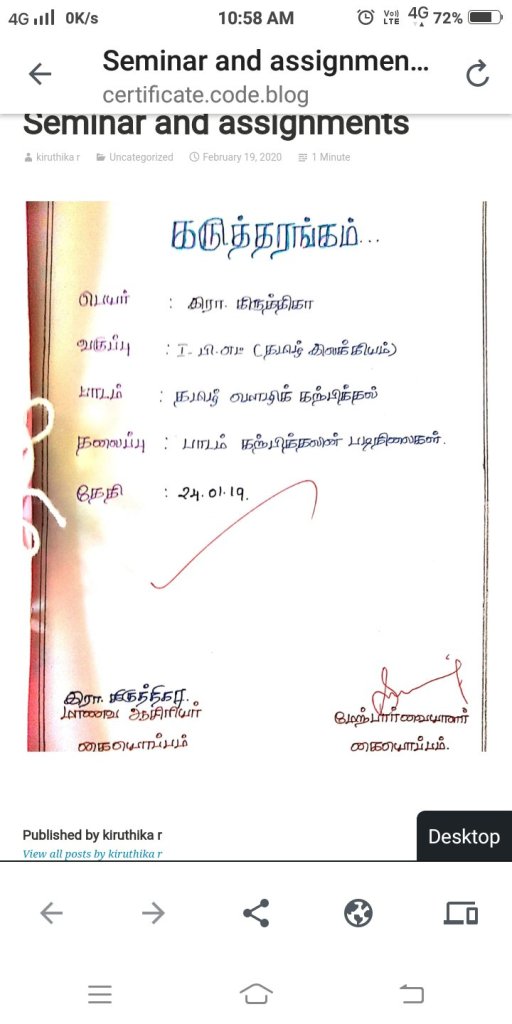 4G 0K/s 10:58 AM VoLTE 4G 72%
Seminar and assignmen...
certificate.code.blog
Seminar and assignments
kiruthika r Uncategorized February 19, 2020 1 Minute
கருத்தரங்கம்...
பெயர் : கிரா. கிருத்திகா
வகுப்பு : I- பி.எட் (தமிழ் இலக்கியம்)
பாடம் : தமிழ் மொழிக் கற்பித்தல்
தலைப்பு : பாடம் கற்பித்தலின் படிநிலைகள்.
தேதி : 24.01.19.
இரா. கிருத்திகா.
மாணவ ஆசிரியர் மேற்பார்வையாளர்
கையொப்பம் கையொப்பம்.
Published by kiruthika r
View all posts by kiruthika r
Desktop